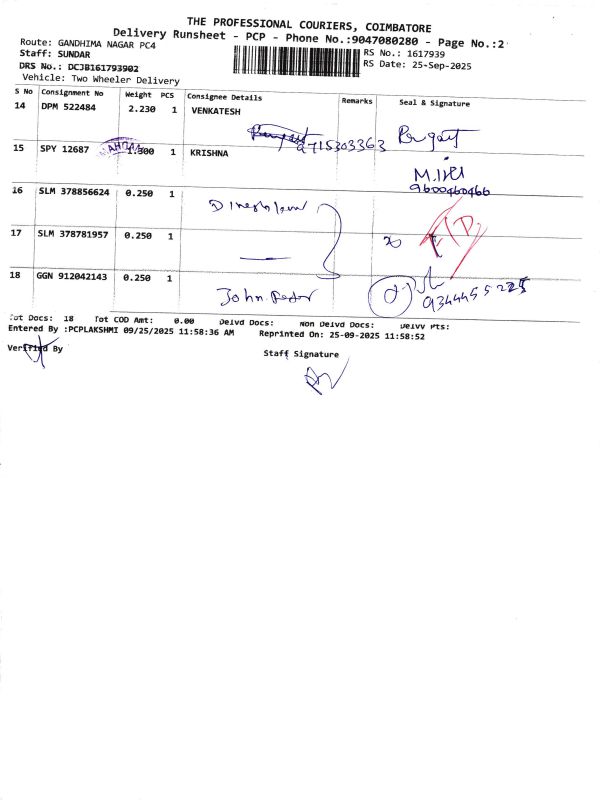 THE PROFESSIONAL COURIERS, COIMBATORE
Delivery Runsheet - PCP - Phone No.:9047080280 - Page No.:2
Route: GANDHIMA NAGAR PC4
RS No.: 1617939
Staff: SUNDAR
RS Date: 25-Sep-2025
DRS No.: DCJB161793902
Vehicle: Two Wheeler Delivery
S No Consignment No Weight PCS Consignee Details Remarks Seal & Signature
14 DPM 522484 2.230 1 VENKATESH
9715303363
15 SPY 12687 1.300 1 KRISHNA
9600460466
16 SLM 378856624 0.250 1
17 SLM 378781957 0.250 1
18 GGN 912042143 0.250 1
John
Tot Docs: 18 Tot COD Amt: 0.00 Delvd Docs: Non Delvd Docs: Delvv Pts:
Entered By :PCPLAKSHMI 09/25/2025 11:58:36 AM Reprinted On: 25-09-2025 11:58:52
Verified By
Staff Signature